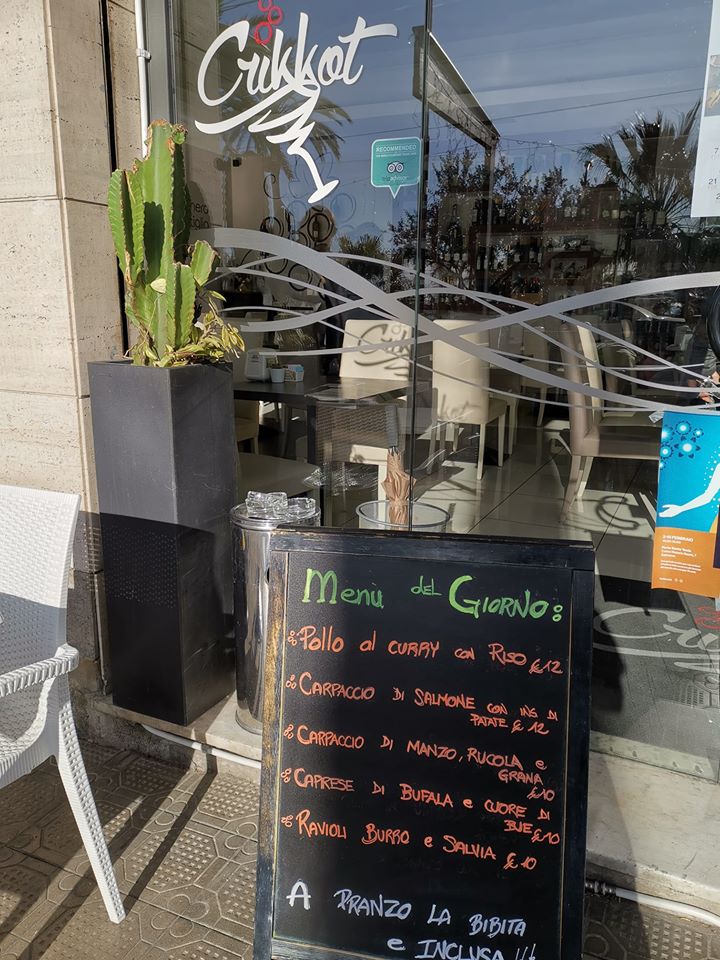 Crikkot
RECOMMENDED
tripadvisor
Menù del GIORNO:
Pollo al CURRY con RISO € 12
CARPACCIO DI SALMONE CON INS DI
PATATE € 12
CARPACCIO DI MANZO, RUCOLA e
GRANA
€ 10
CAPRESE DI BUFALA e CUORE DI
BUE € 10
RAVIOLI BURRO e SALVIA € 10
A PRANZO LA BIBITA
e INCLUSA !!!
FEBBRAIO
7
21